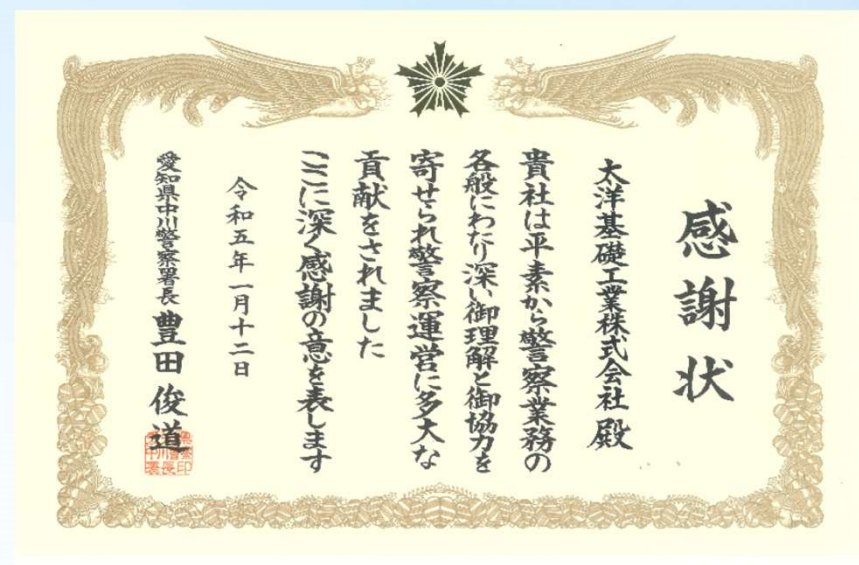 感謝状
太洋基礎工業株式会社 殿
貴社は平素から警察業務の
各般にわたり深い御理解と御協力を
寄せられ警察運営に多大な
貢献をされました
ここに深く感謝の意を表します
令和五年一月十二日
愛知県中川警察署長 豊田俊道